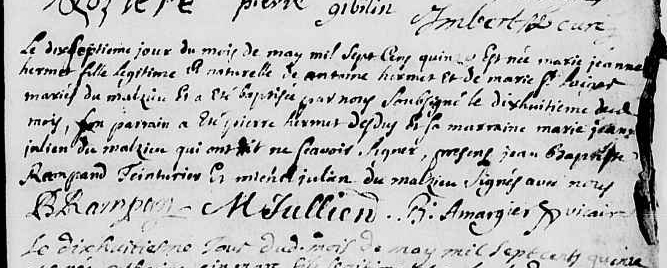 Rosiere pierre gibilin Imbert Cure
Le dixseptieme jour du mois de may mil sept cens quinze Est née marie jeanne
hermet fille légitime Et naturelle de antoine hermet Et de marie
mariés du malzieu Et a eté baptisée par nous soubsigné le dixhuitieme dud
mois, son parrain a eté pierre hermet desdus Et sa marraine marie jeanne
julien du malzieu qui ont dit ne scavoir signer, presens jean Baptiste
Rampand Teinturier Et michel julian du malzieu signés avec nous
BRampan M Jullien . B. Amargier vicaire
Le dixhuitiesme Jour dud mois de may mil sept cents quinze